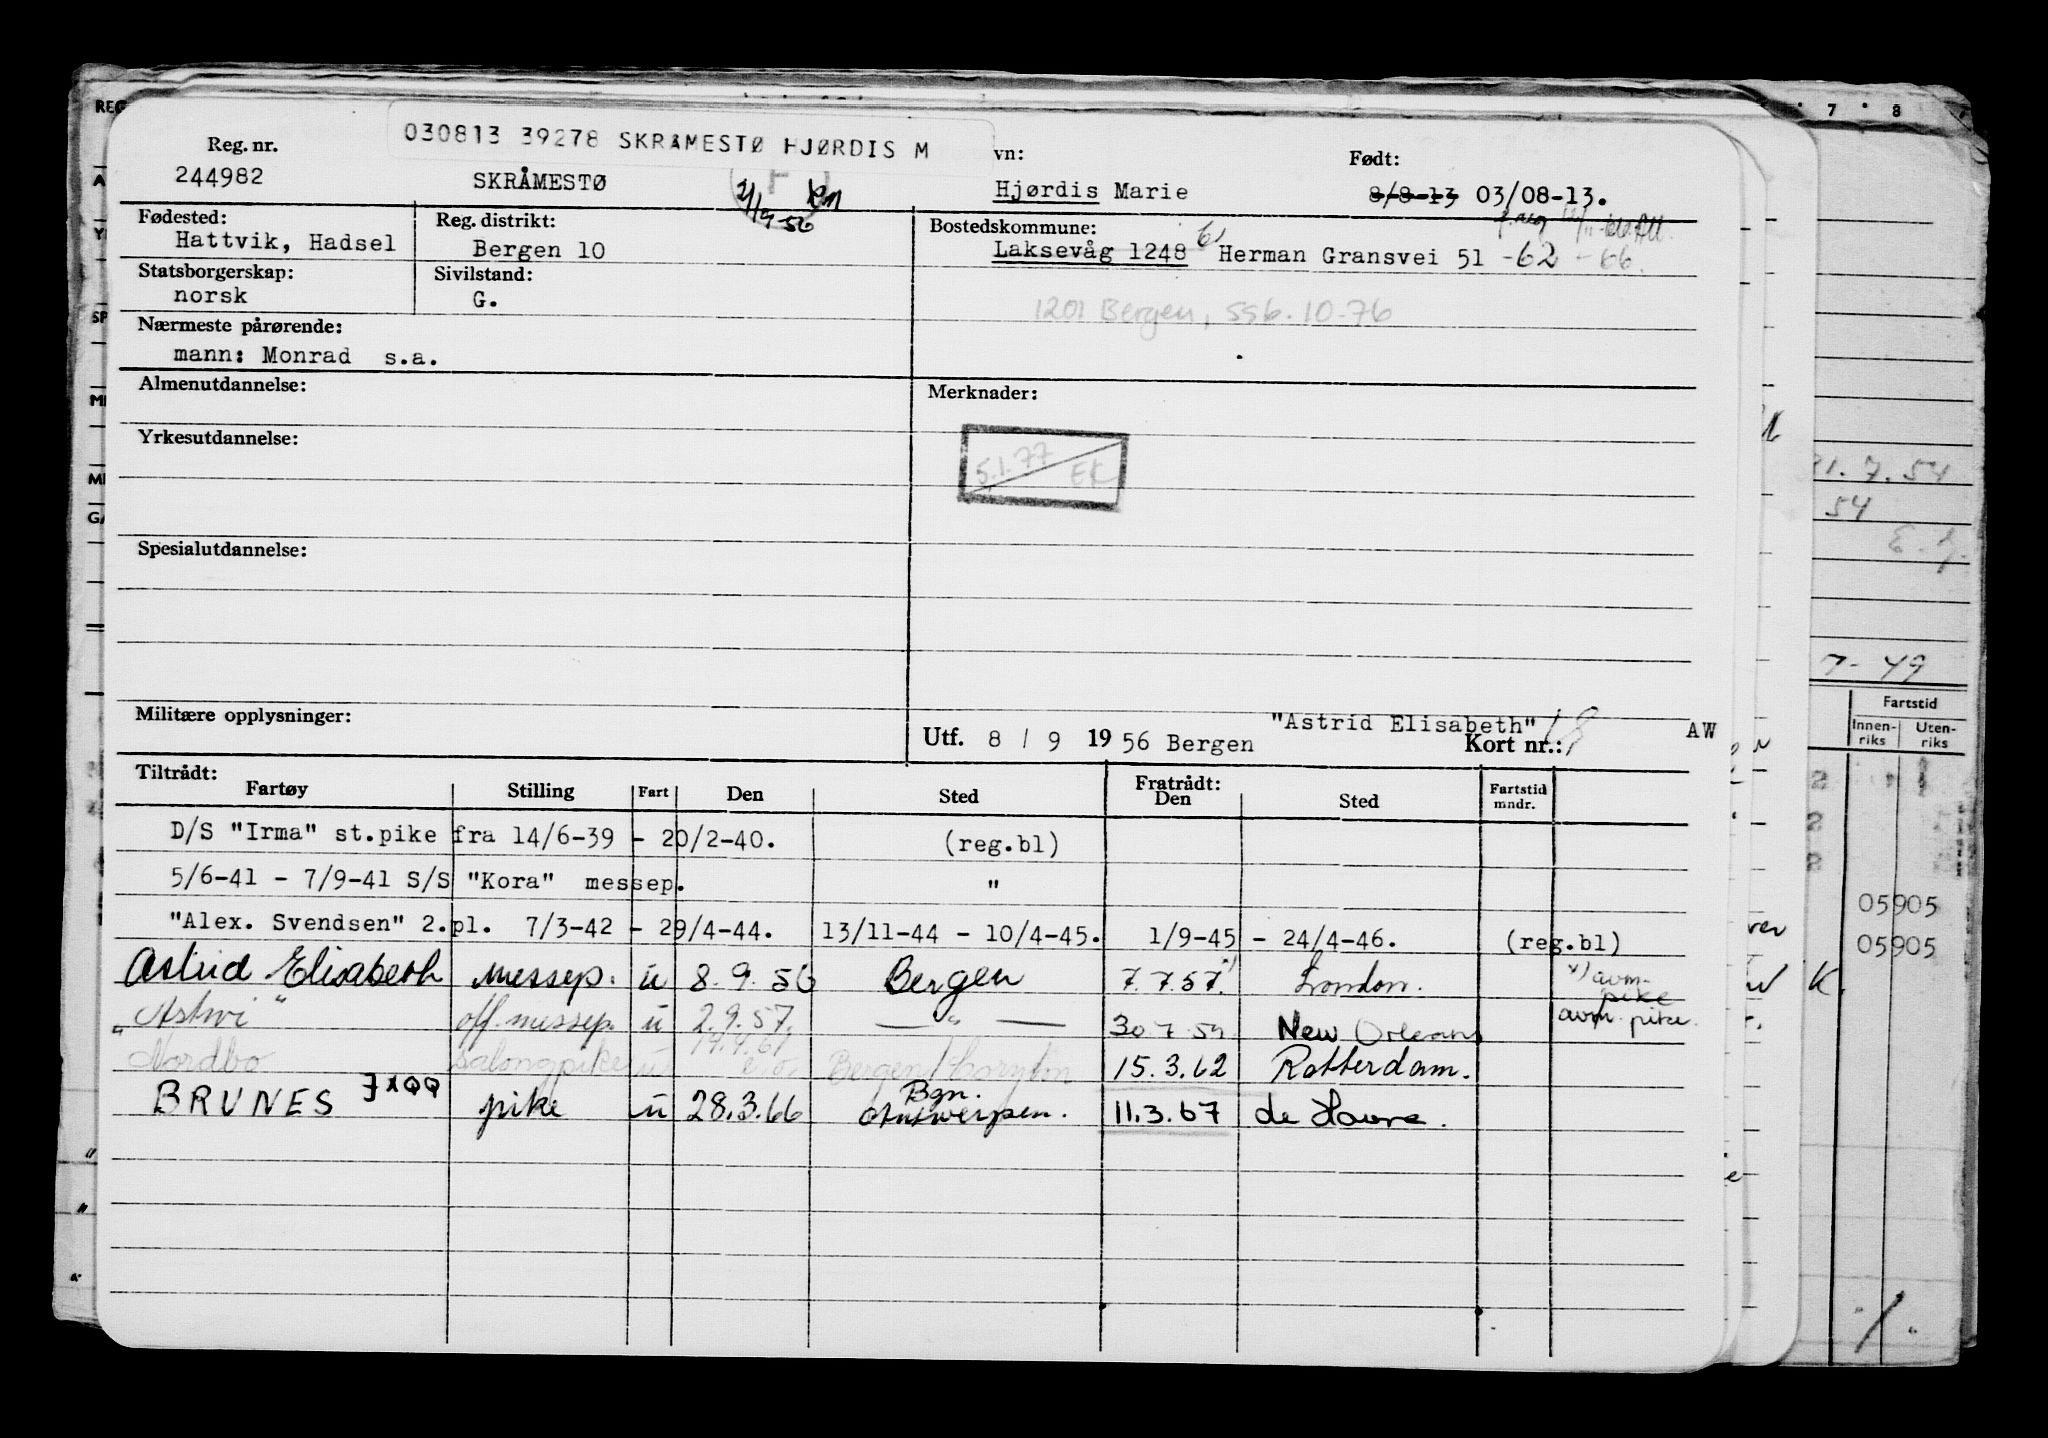 030813 39278 SKRAMESTØ HJØRDIS M
Reg. nr. vn: Født:
244982 SKRÅMESTØ Hjørdis Marie 8/8-13 03/08-13.
Fødested: Reg. distrikt: Bostedskommune:
Hattvik, Hadsel Bergen 10 Laksevåg 1248 Herman Gransvei 51 -62 -66.
Statsborgerskap: Sivilstand:
norsk G.
1201 Bergen, ss6.10-76
Nærmeste pårørende:
mann: Monrad s.a.
Almenutdannelse: Merknader:
Yrkesutdannelse:
5.1.77 EK
Spesialutdannelse:
Militære opplysninger:
"Astrid Elisabeth" AW
Utf. 8 / 9 19 56 Bergen Kort nr.:
Tiltrådt: Fratrådt:
Fartøy Stilling Fart Den Sted Den Sted Fartstid mndr.
D/S "Irma" st.pike fra 14/6-39 - 20/2-40. (reg.bl)
5/6-41 - 7/9-41 S/S "Kora" messep. "
"Alex. Svendsen" 2.pl. 7/3-42 - 29/4-44. 13/11-44 - 10/4-45. 1/9-45 - 24/4-46. (reg.bl)
Astrid Elisabeth messep. u 8.9.56 Bergen 7.7.57. x) London. x) avm. pike
"Astwi" off. messep. u 2.9.57. — " — 30.7.59 New Orleans avm. pike.
Nordbo salongpike u 15.3.62 Rotterdam.
BRUNES JXQQ pike u 28.3.66 Bgn. Antwerpen. 11.3.67 de Havre.
21.7.54
54
7-49
Fartstid
Innen-riks Uten-riks
05905
05905